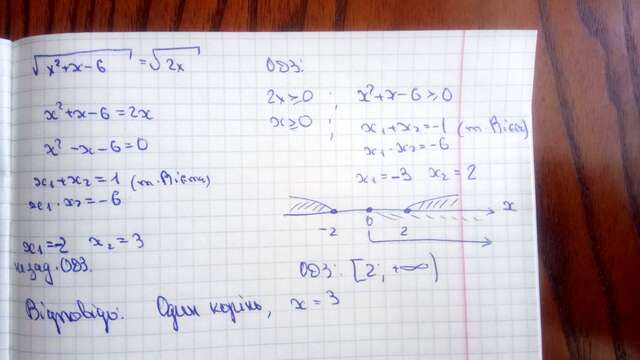 √x²+x-6 = √2x
x²+x-6=2x
x²-x-6=0
x₁+x₂=1 (т. Вієта)
x₁·x₂=-6
x₁=-2 x₂=3
не зад. ОДЗ.
ОДЗ:
2x≥0 ; x²+x-6≥0
x≥0 ; x₁+x₂=-1 (т. Вієта)
x₁·x₂=-6
x₁=-3 x₂=2
-2 0 2 x
ОДЗ: [2; +∞)
Відповідь: Один корінь, x=3